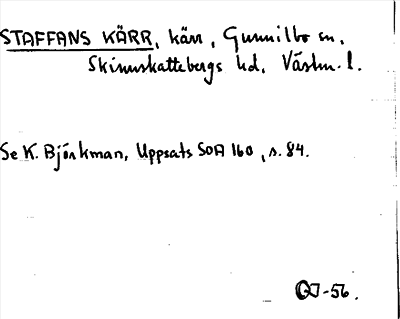 STAFFANS KÄRR, kärr, Gunnilbo sn,
Skinnskattebergs hd, Västm. l.
Se K. Björkman, Uppsats SOA 160, s. 84.
OJ-56.